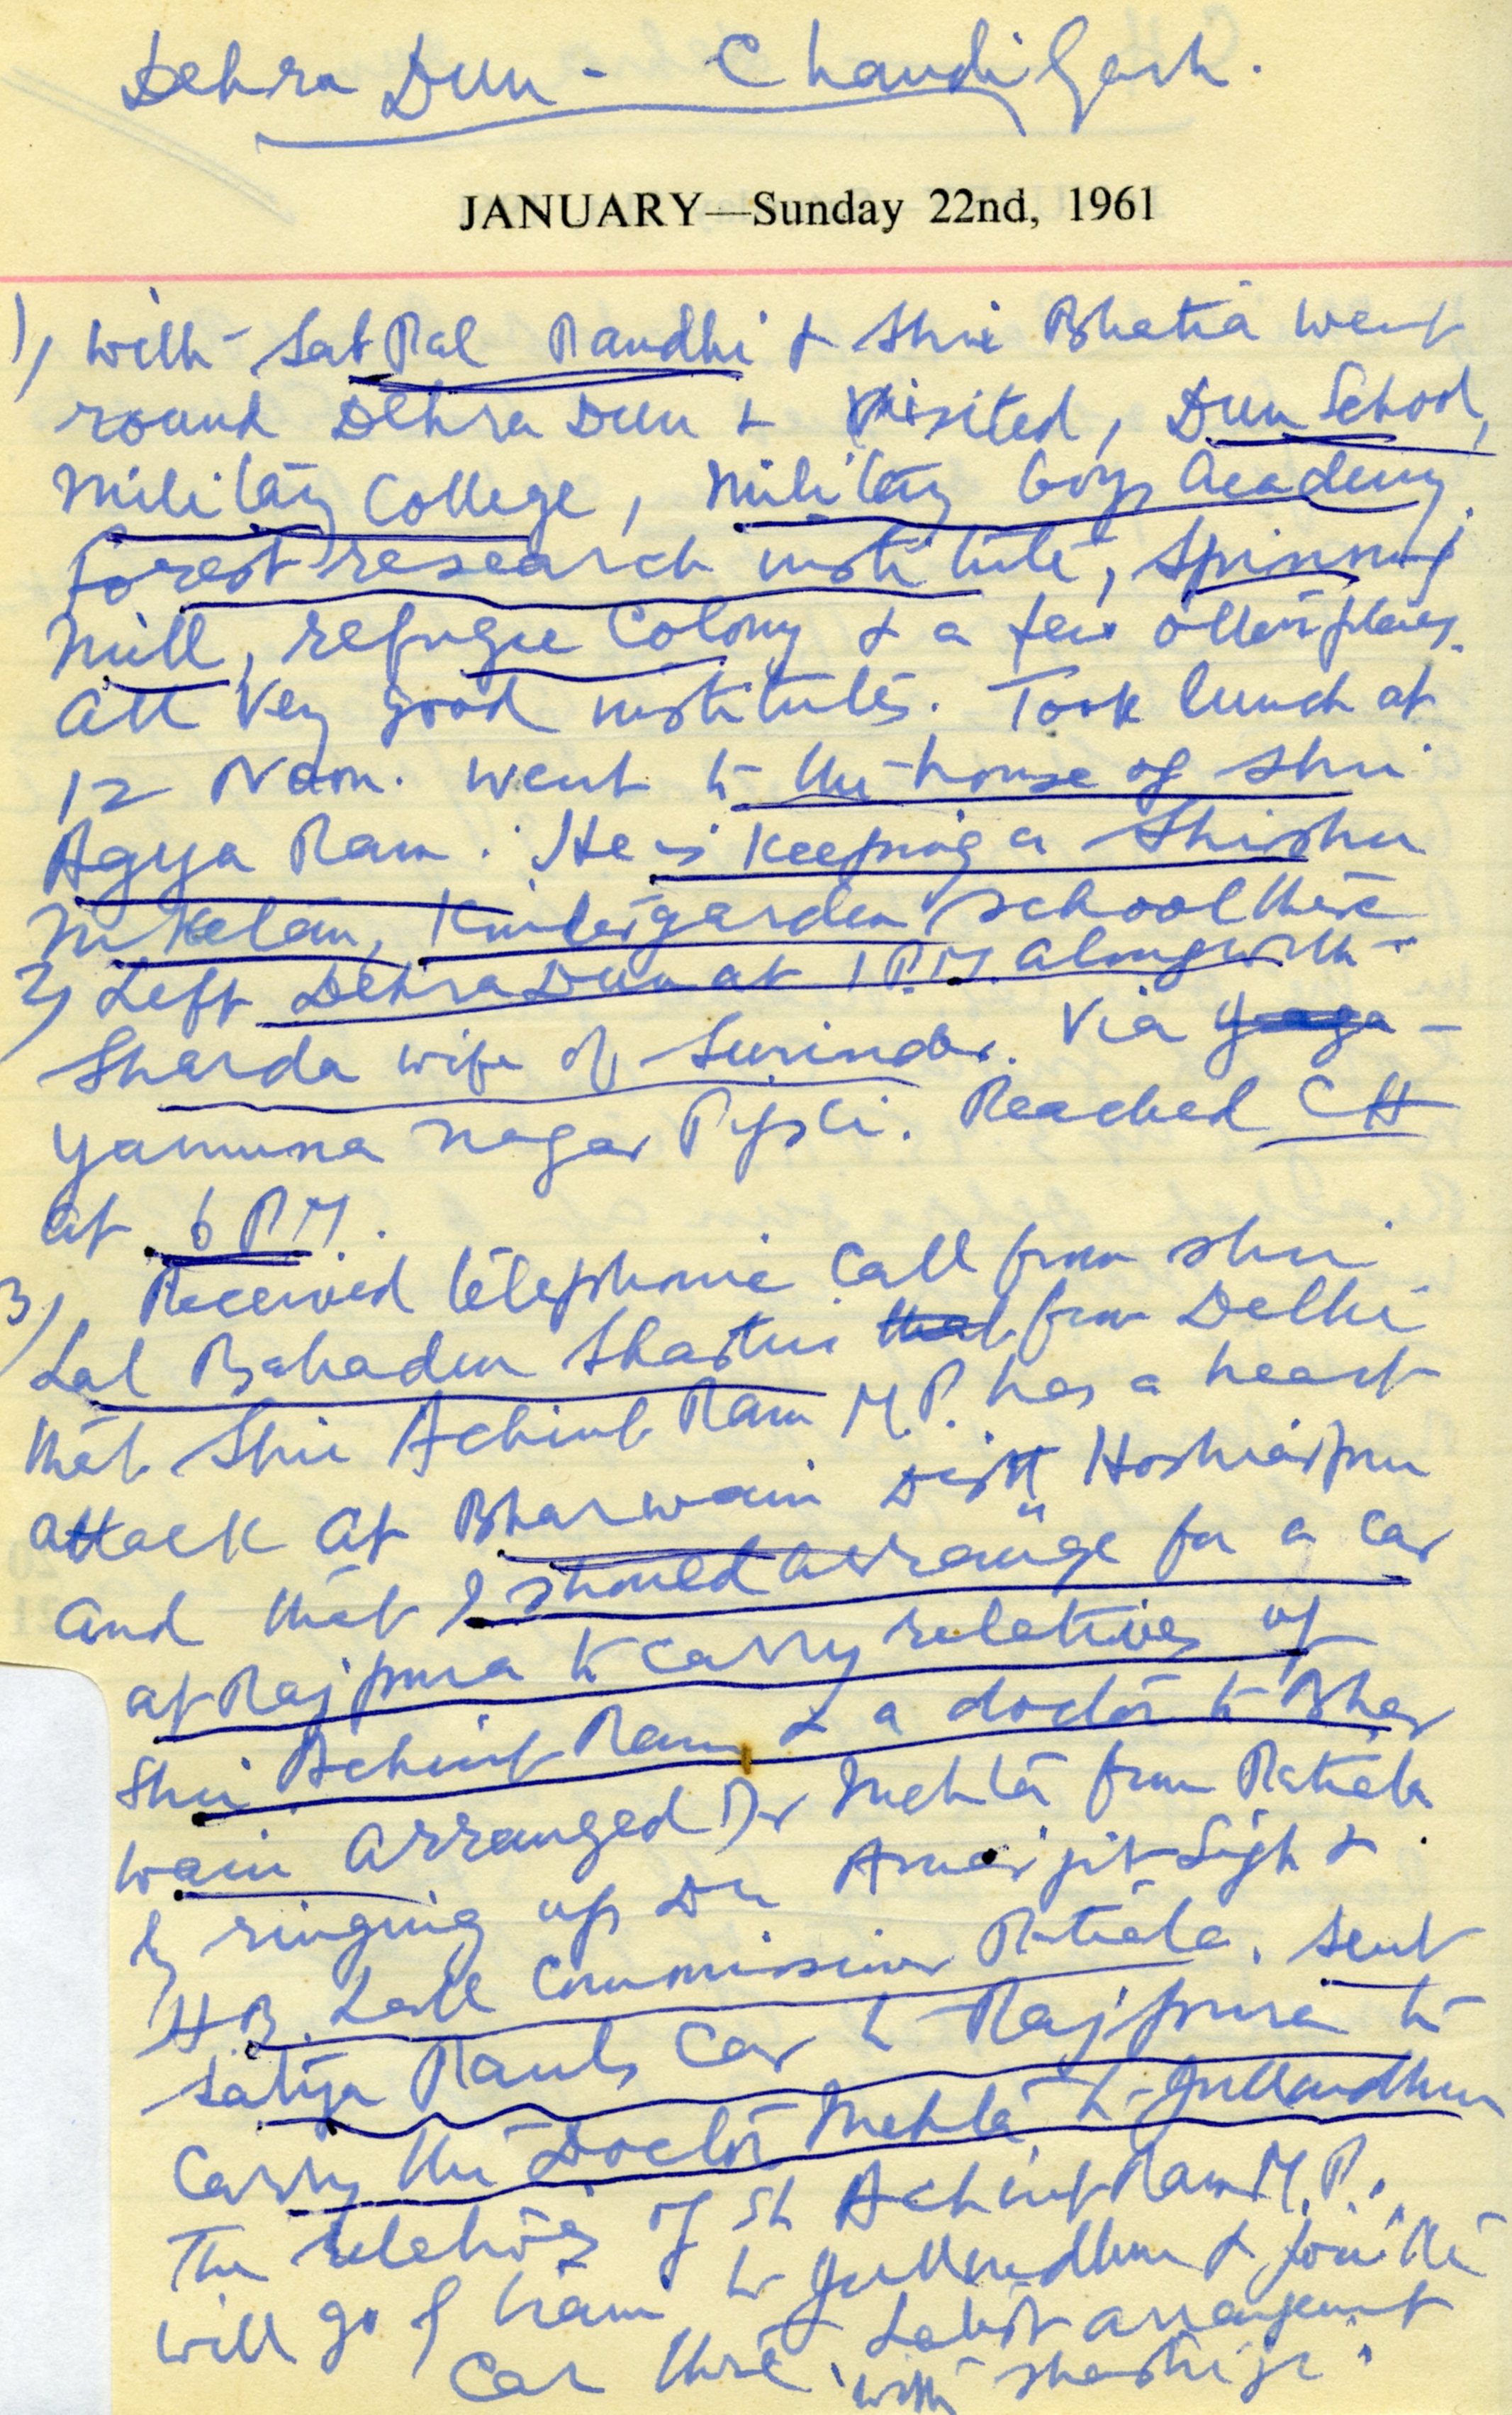 Dehra Dun - Chandigarh.
JANUARY—Sunday 22nd, 1961
1) with Sat Pal Pandhi & Shri Bhatia went
round Dehra Dun & visited, Dun School,
Military College, Military boys Academy
forest research institute, spinning
mill, refugee Colony & a few other places.
all very good institutes. Took lunch at
12 Noon. went to the house of Shri
Agya Ram. He is keeping a Shishu
niketan, Kindergarden school there
2) Left Dehra Dun at 1 P.M. alongwith
Sharda wife of Surinder. Via
yamuna nagar Pipli. Reached CH
at 6 P.M.
3) Received telephonic call from Shri
Lal Bahadur Shastri that from Delhi
that Shri Achint Ram M.P. has a heart
attack at Bharwain Distt Hoshiarpur
and that I should arrange for a car
at Rajpura to carry relatives of
Shri Achint Ram & a doctor to Bhar
wain arranged Dr Mehta from Patiala
by ringing up Dr Amarjit Sigh &
H.B. Lall Commissioner Patiala. Sent
Satya Pauls Car to Rajpura to
carry the Doctor Mehta to Jullundhur
The relatives of Sh Achint Ram M.P.
will go by train to Jullundhur & join the
Car there. Latest arrangement
with Shastri ji.